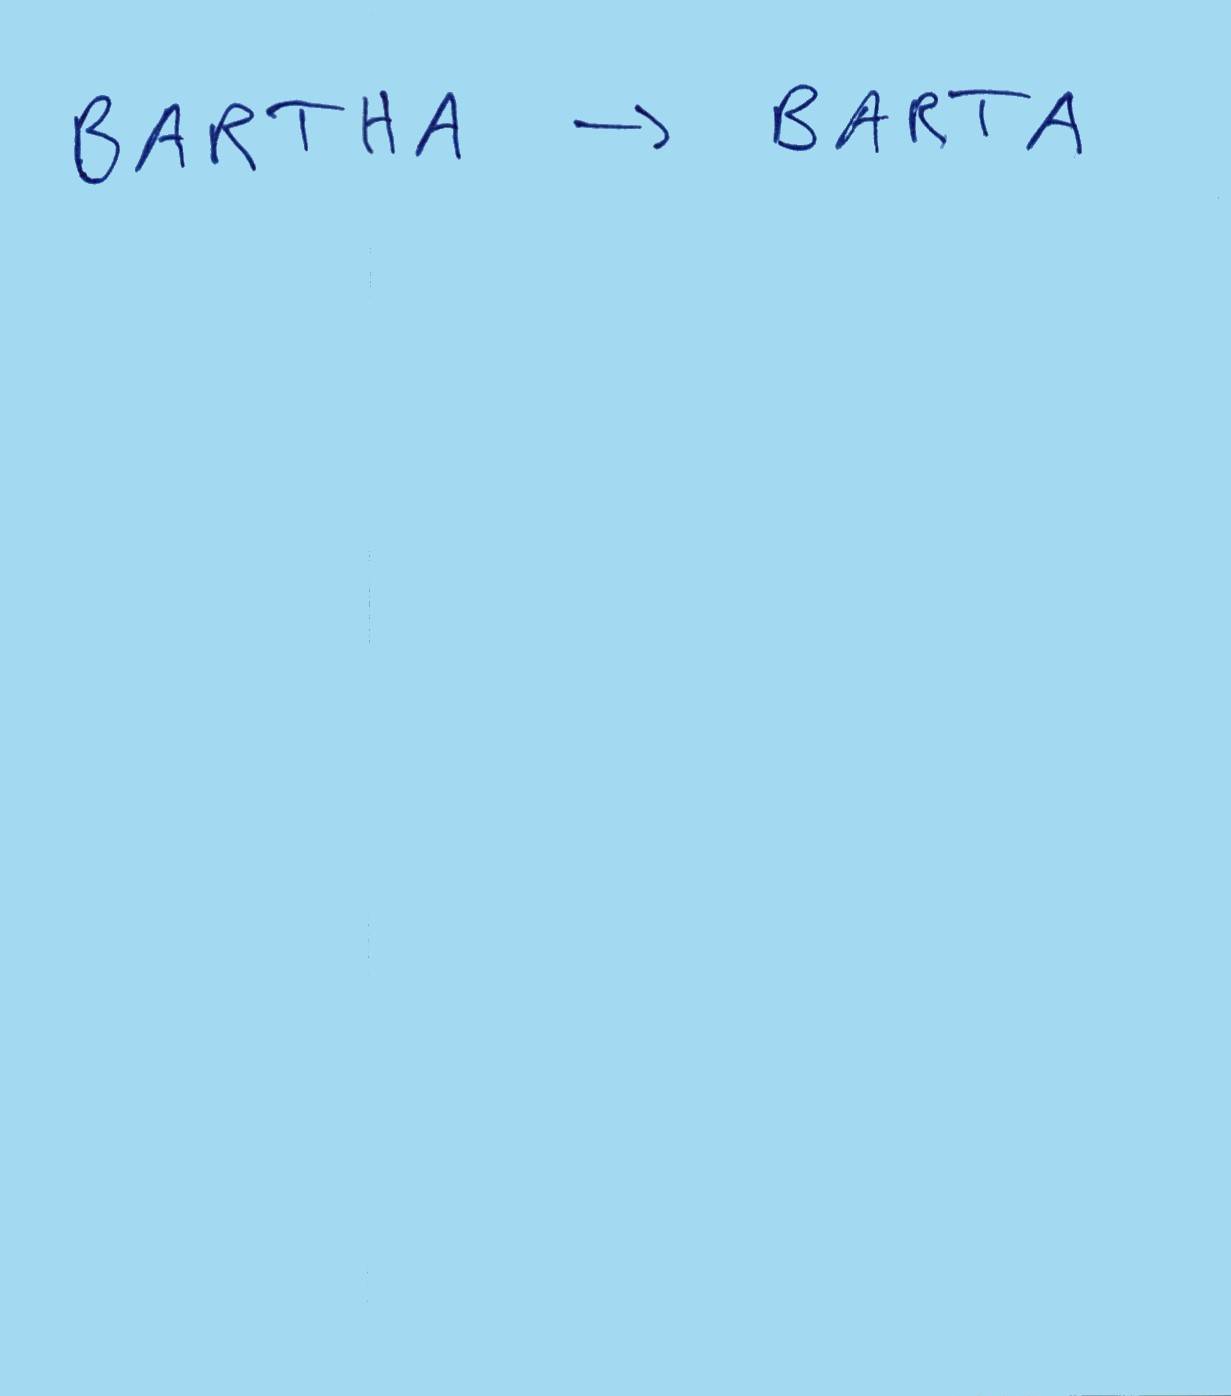 BARTHA → BARTA